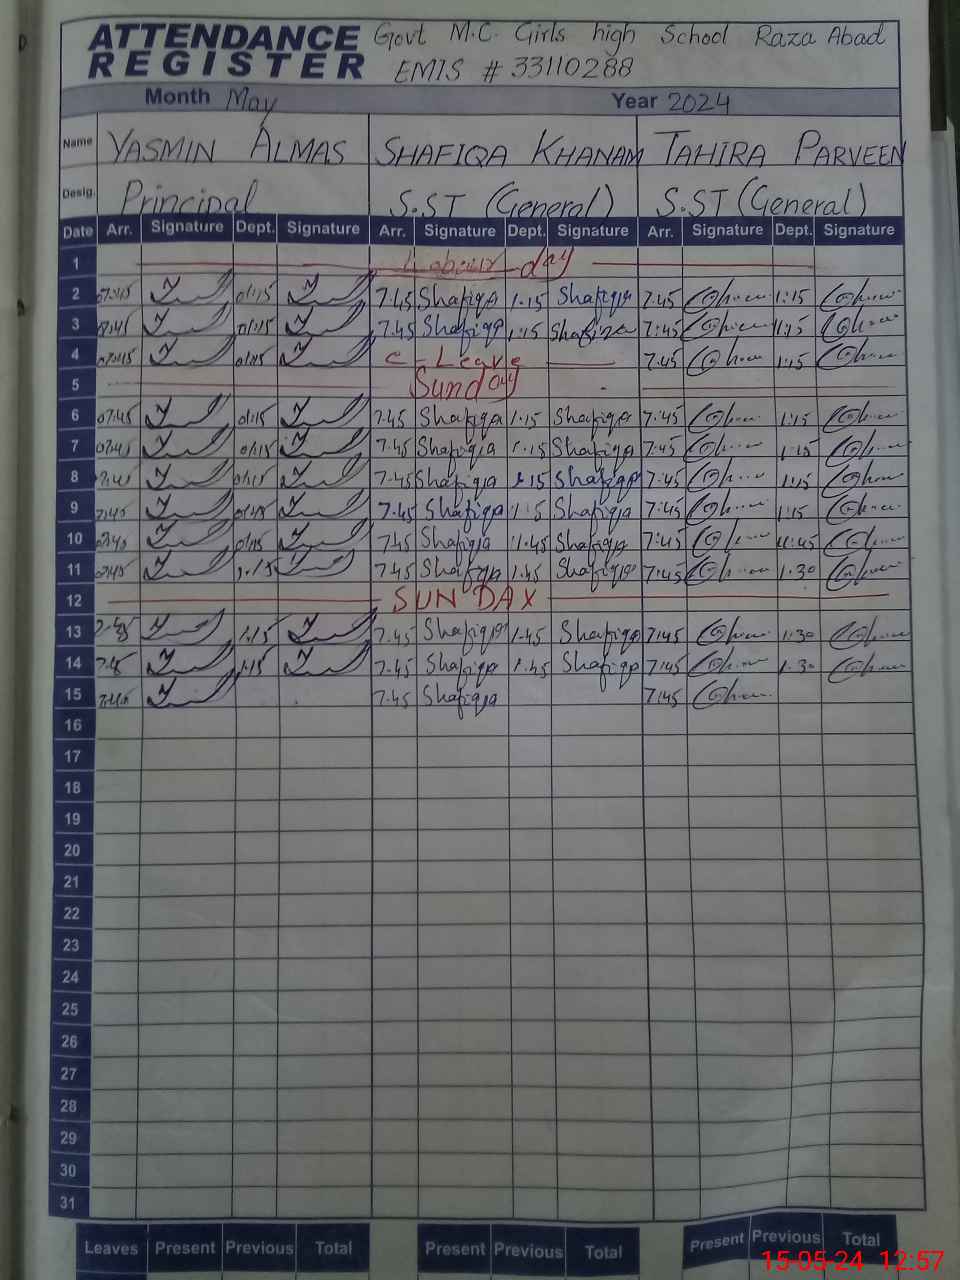 ATTENDANCE REGISTER
Govt M.C. Girls high School Raza Abad
EMIS # 33110288
Month May Year 2024
Name YASMIN ALMAS SHAFIQA KHANAM TAHIRA PARVEEN
Desig. Principal S.ST (General) S.ST (General)
Date Arr. Signature Dept. Signature Arr. Signature Dept. Signature Arr. Signature Dept. Signature
1 Labour day
2 07:45 01:15 7.45 Shafiqa 1.15 Shafiqa 7.45 1:15
3 7.45 Shafiqa 1:15 Shafiqa 7:45 1:15
4 07:45 01:15 C-Leave 7.45 1:15
5 Sunday
6 07:45 01:15 7.45 Shafiqa 1.15 Shafiqa 7:45 1:15
7 07:45 01:15 7.45 Shafiqa 1.15 Shafiqa 7:45 1:15
8 01:15 7.45 Shafiqa 1.15 Shafiqa 7:45 1:15
9 7:45 7.45 Shafiqa 1.15 Shafiqa 7:45 1:15
10 01:15 7.45 Shafiqa 11.45 Shafiqa 7:45 11:45
11 7.45 Shafiqa 1.45 Shafiqa 7:45 1.30
12 SUNDAY
13 1:15 7.45 Shafiqa 1.45 Shafiqa 7:45 1:30
14 1:15 7.45 Shafiqa 1.45 Shafiqa 7:45 1.30
15 7.45 Shafiqa 7:45
16
17
18
19
20
21
22
23
24
25
26
27
28
29
30
31
Leaves Present Previous Total Present Previous Total Present Previous Total
15-05-24 12:57